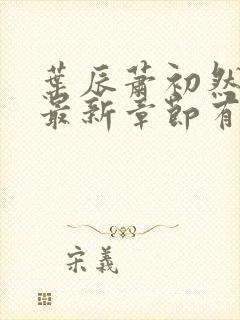 葉辰蕭初然
最新章節有
宋義